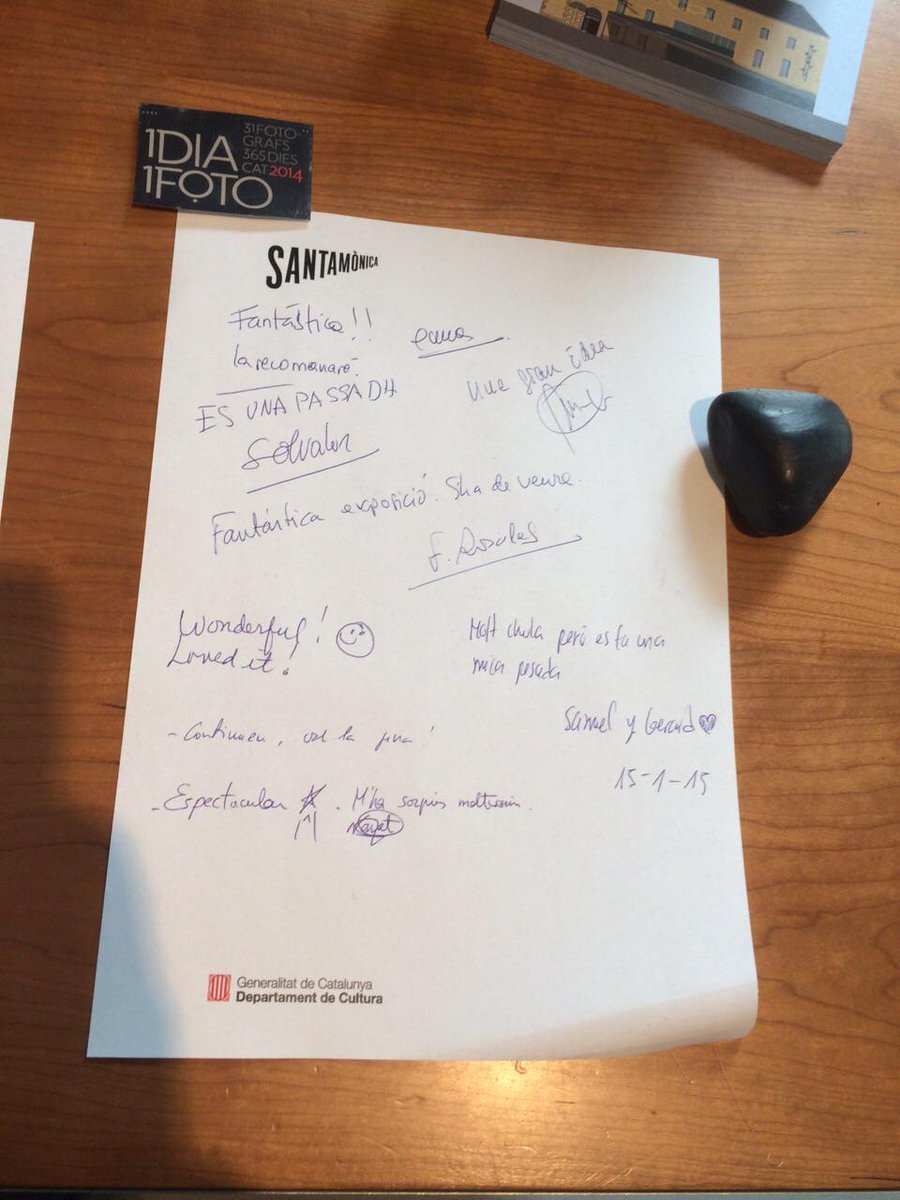 1DIA
1FOTO
31FOTO-
GRAFS
365DIES
CAT2014
SANTAMÒNICA
Fantástica!!
la recomanaré.
ES UNA PASSADA
Salvador
una gran idea
Fantástica exposició. S'ha de veure.
F. Rosales
Wonderful!
Loved it!
Molt chula però es fa una
mica pesada
Samuel y Gerard
15-1-15
- Continueu, val la pena!
- Espectacular. M'ha sorprès moltíssim.
Generalitat de Catalunya
Departament de Cultura